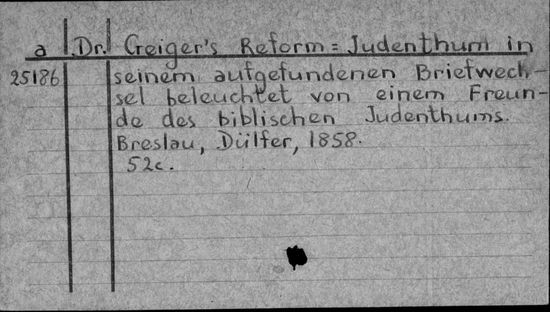 a Dr. Geiger's Reform = Judenthum in
25186 seinem aufgefundenen Briefwech-
sel beleuchtet von einem Freun-
de des biblischen Judenthums.
Breslau, Dülfer, 1858.
52c.